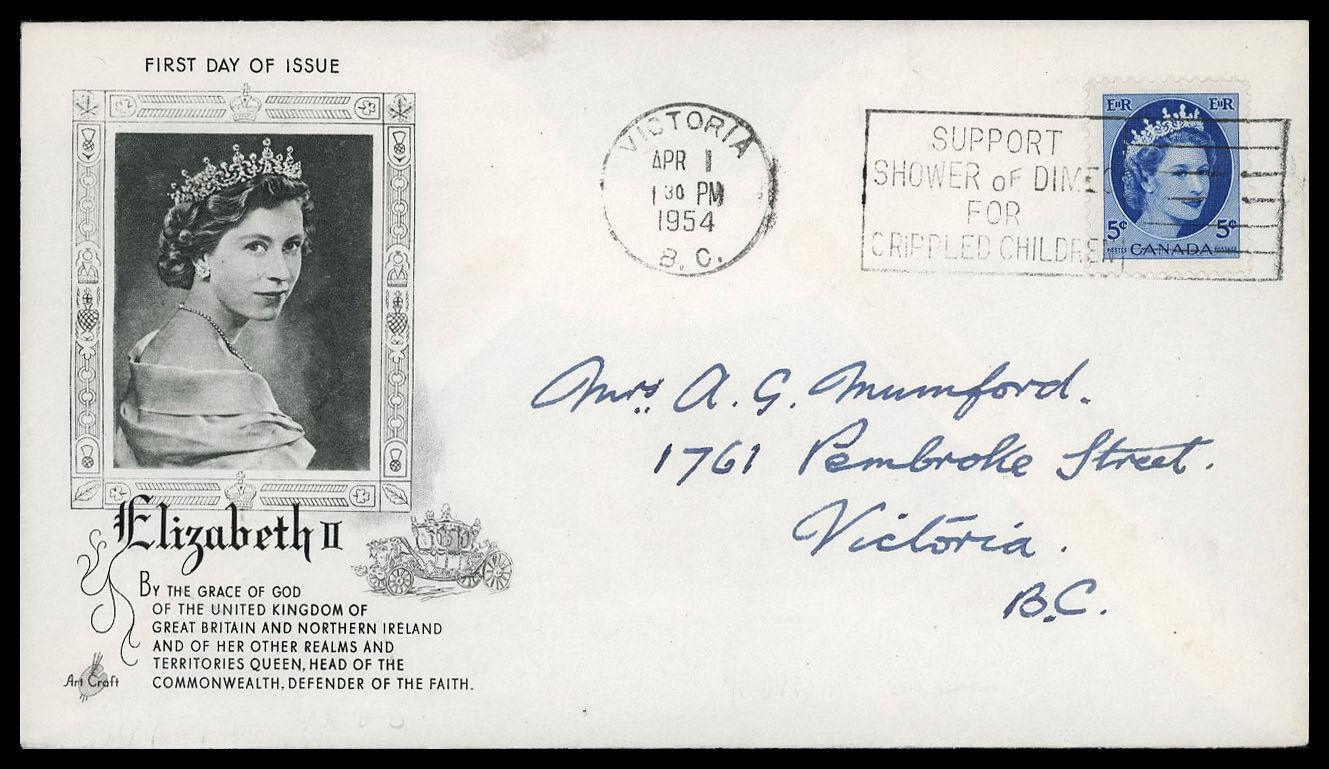 FIRST DAY OF ISSUE
Elizabeth II
BY THE GRACE OF GOD
OF THE UNITED KINGDOM OF
GREAT BRITAIN AND NORTHERN IRELAND
AND OF HER OTHER REALMS AND
TERRITORIES QUEEN, HEAD OF THE
COMMONWEALTH, DEFENDER OF THE FAITH.
Art Craft
VICTORIA
APR 1
1 30 PM
1954
B. C.
SUPPORT
SHOWER OF DIMES
FOR
CRIPPLED CHILDREN
EIIR EIIR
5¢ 5¢
POSTES CANADA POSTAGE
Mrs. A. G. Mumford.
1761 Pembroke Street.
Victoria.
B.C.